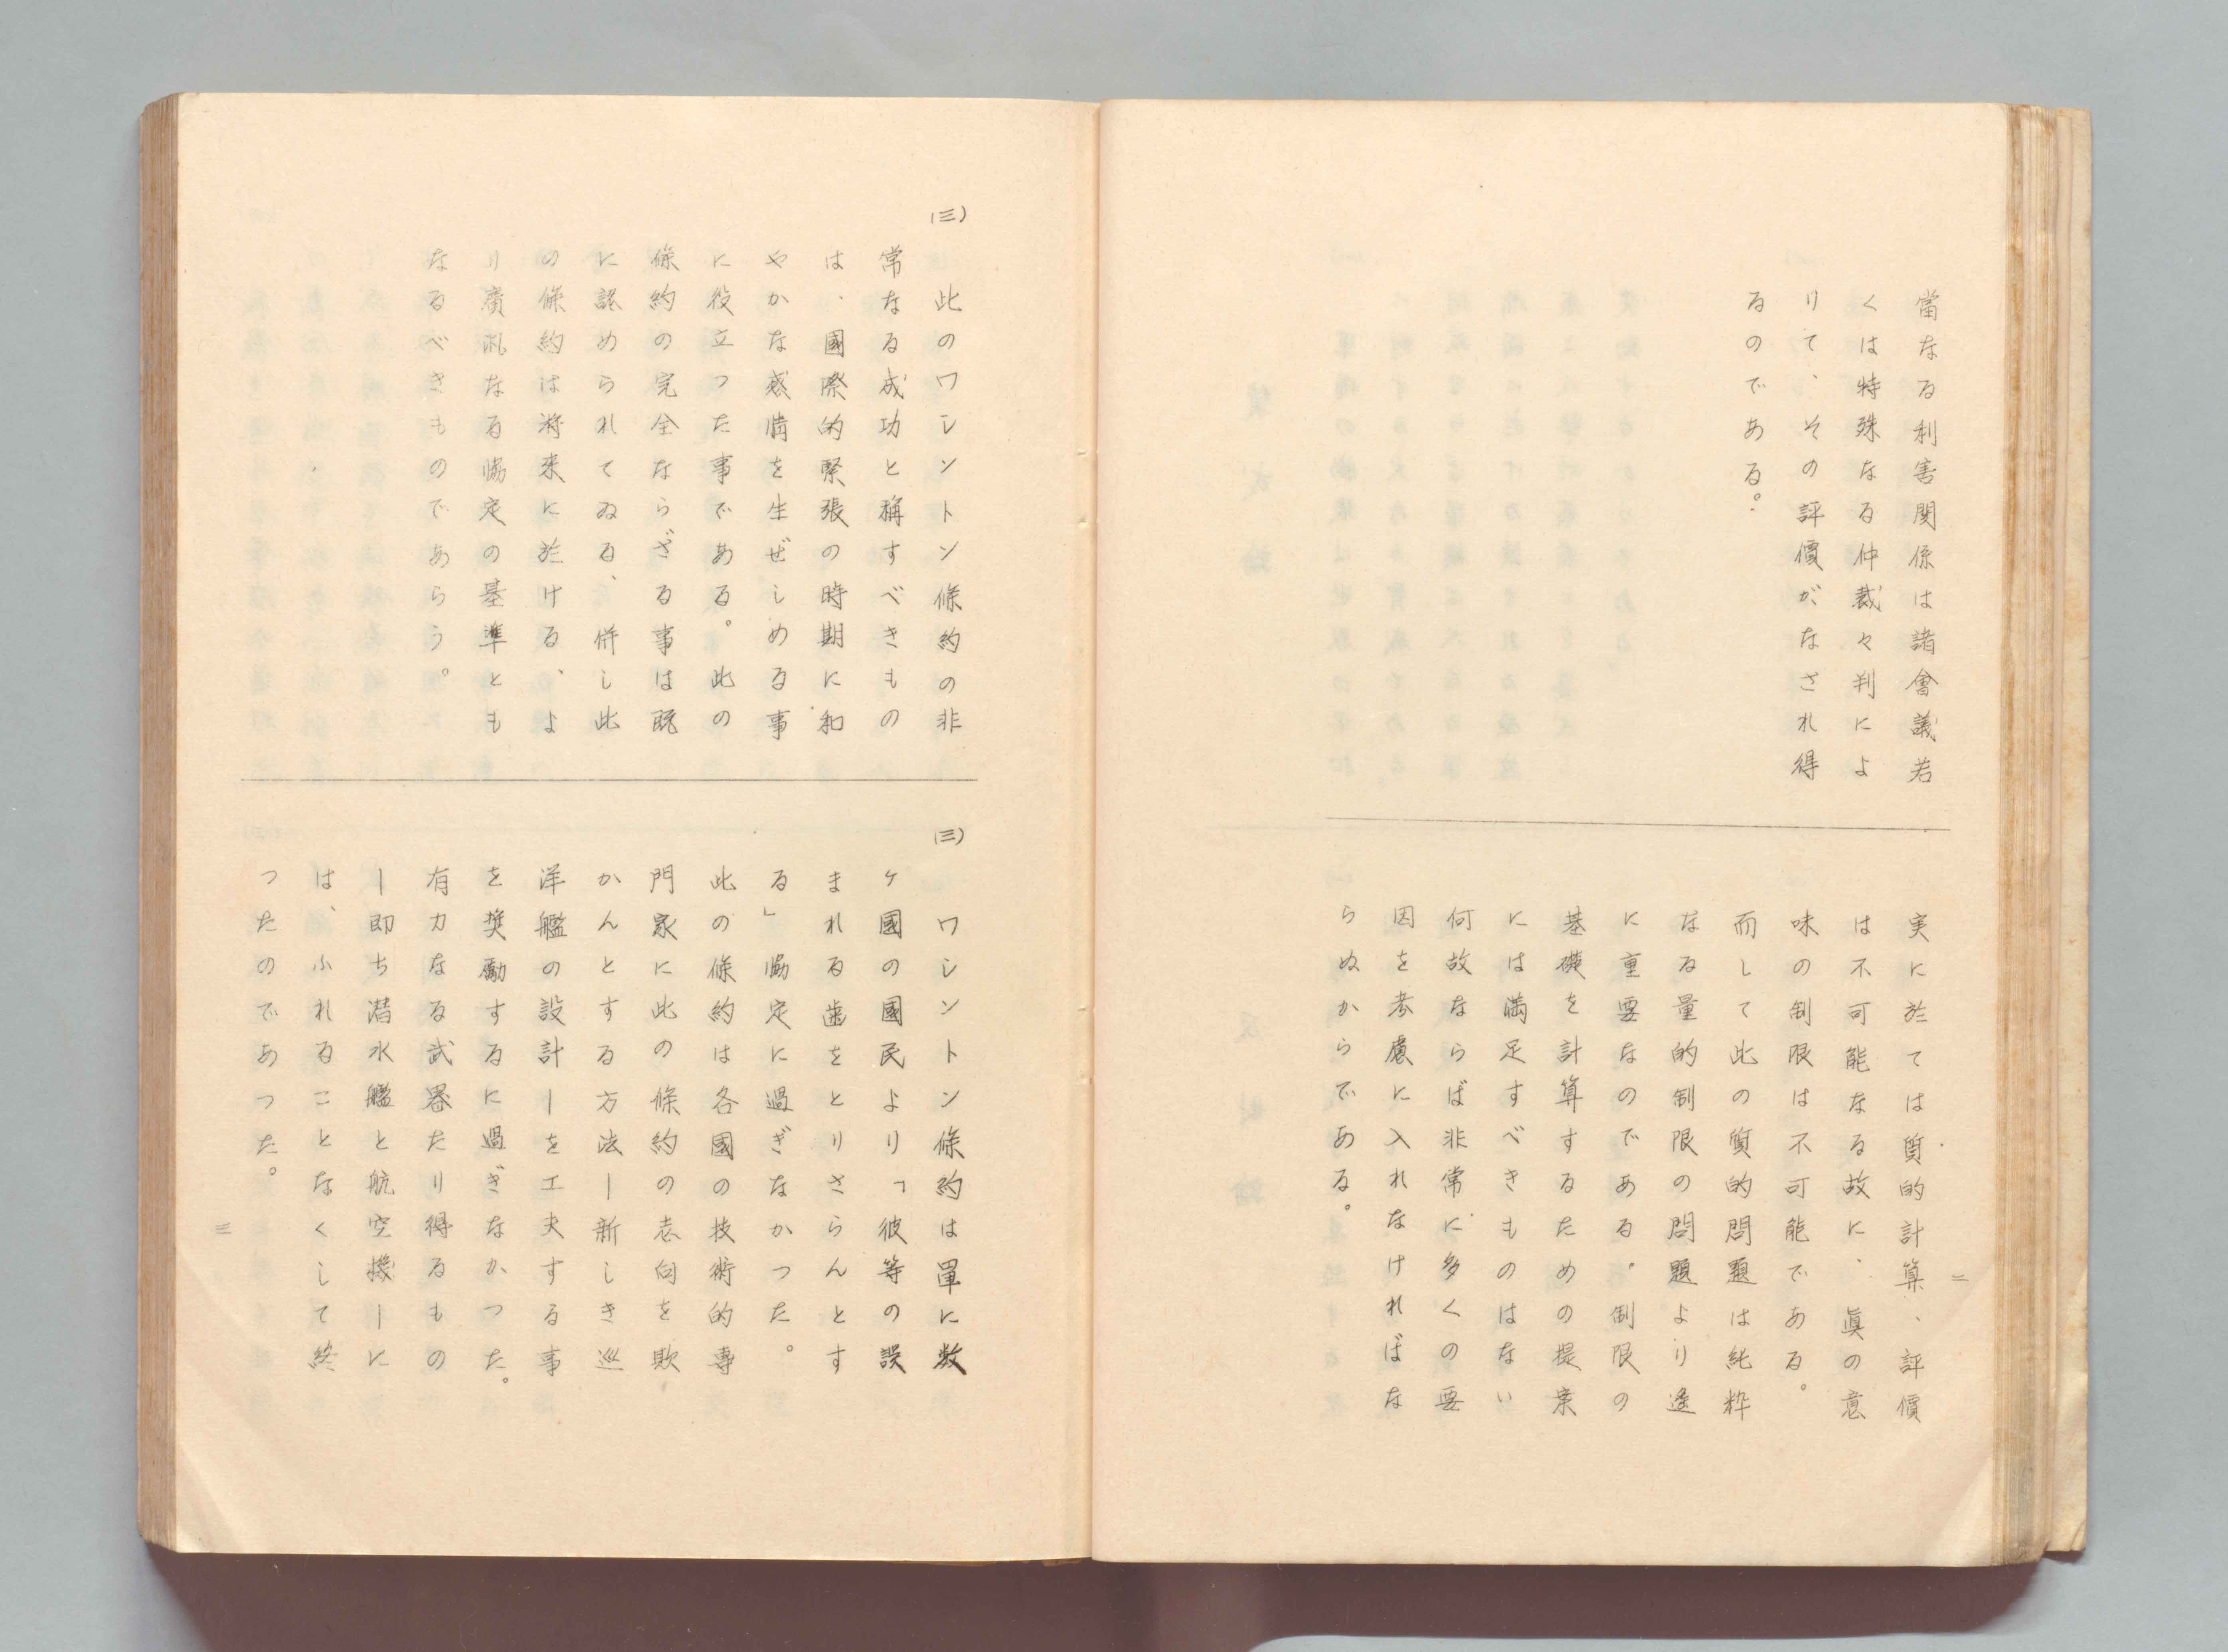 當なる利害関係は諸會議若
くは特殊なる仲裁々判によ
りて、その評價がなされ得
るのである。
実に於ては質的計算、評價
は不可能なる故に、眞の意
味の制限は不可能である。
而して此の質的問題は純粋
なる量的制限の問題より遙
に重要なのである。制限の
基礎を計算するための提案
には満足すべきものはない
何故ならば非常に多くの要
因を考慮に入れなければな
らぬからである。
二
(三)
此のワシントン條約の非
常なる成功と稱すべきもの
は、國際的緊張の時期に和
やかな感情を生ぜしめる事
に役立つた事である。此の
條約の完全ならざる事は既
に認められてゐる、併し此
の條約は將来に於ける、よ
り廣汎なる協定の基準とも
なるべきものであらう。
(三)
ワシントン條約は單に数
ケ國の國民より「彼等の誤
まれる歯をとりさらんとす
る」協定に過ぎなかつた。
此の條約は各國の技術的專
門家に此の條約の志向を欺
かんとする方法ー新しき巡
洋艦の設計ーを工夫する事
を奨勵するに過ぎなかつた。
有力なる武器たり得るもの
ー即ち潜水艦と航空機ーに
は、ふれることなくして終
つたのであつた。
三